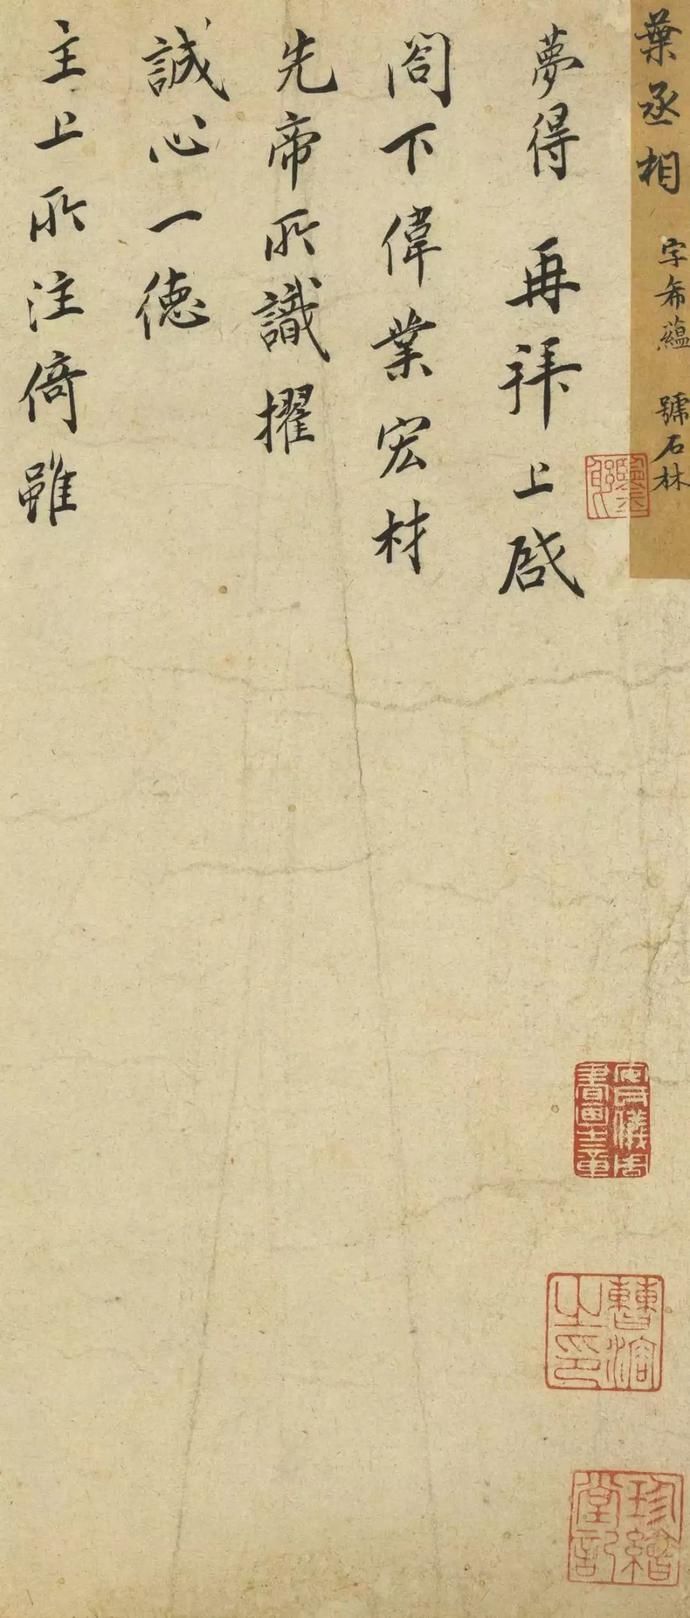 葉丞相 字希蘊 號石林
夢得 再拜上啟
閤下偉業宏材
先帝所識擢
誠心一德
主上所注倚雖
曹溶之印
珍繪堂記